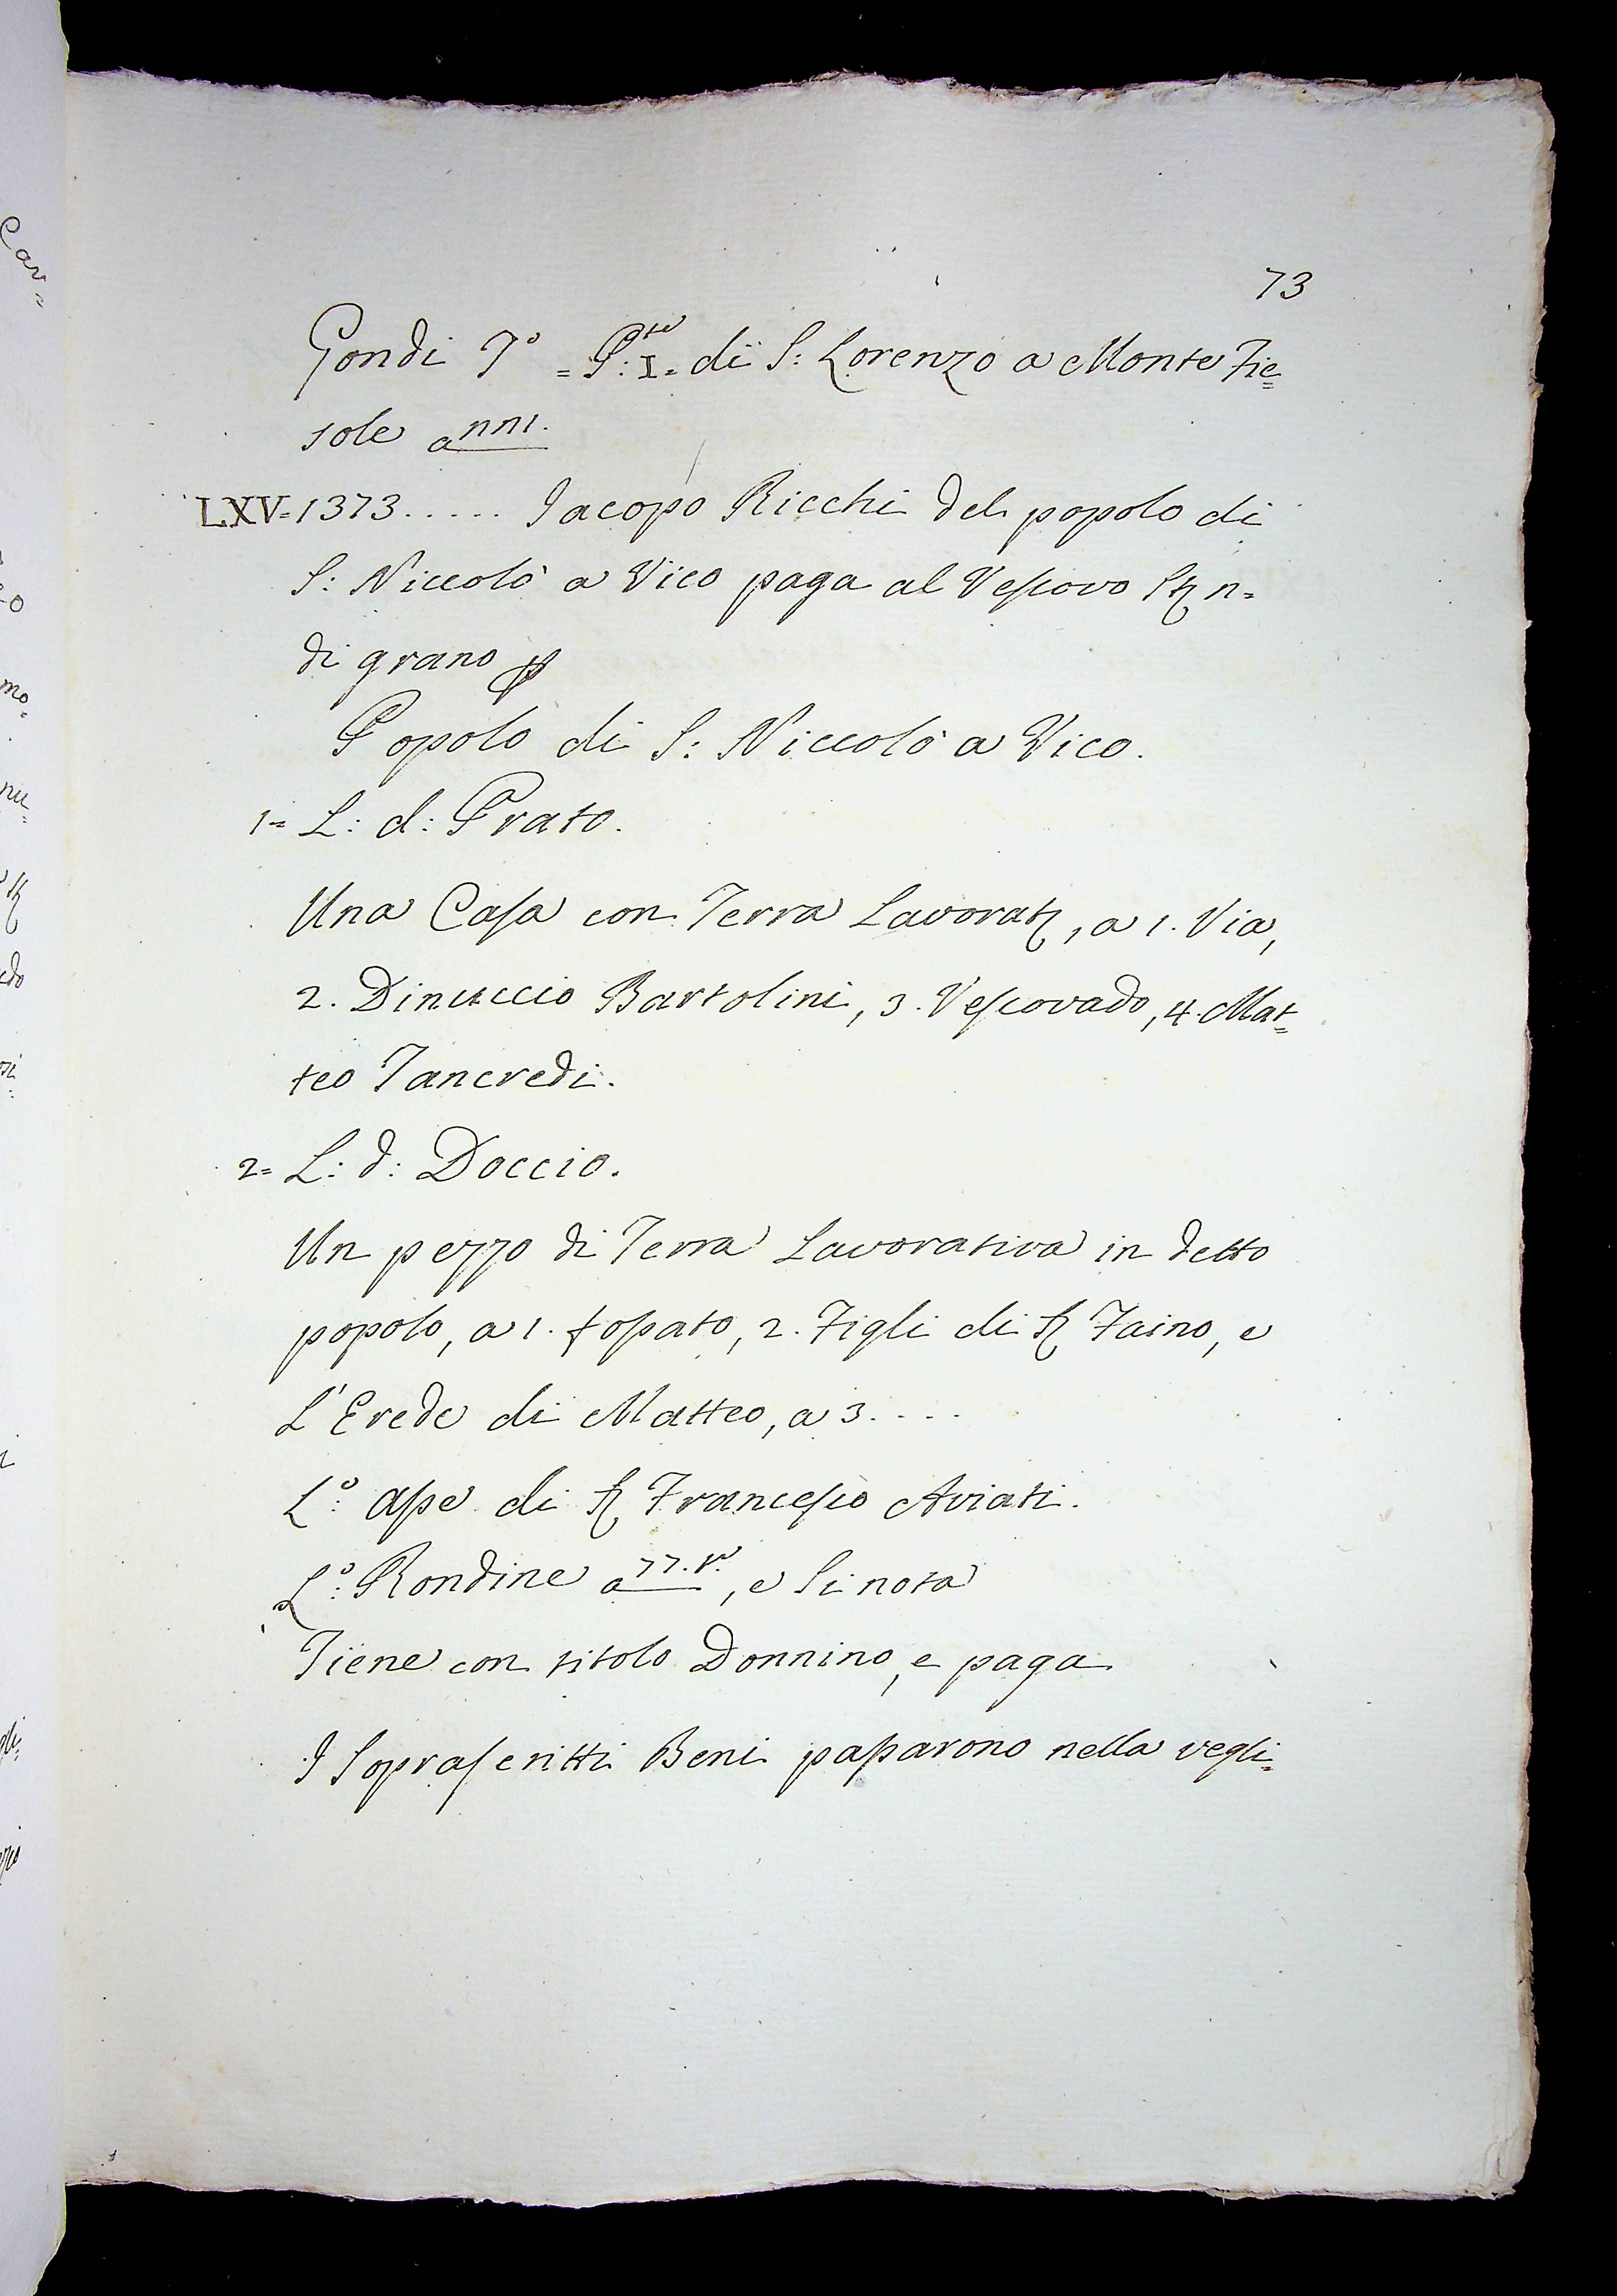 73
Gondi T° = P:te I= di S: Lorenzo a Monte Fie=
sole a nni.
LXV=1373..... Jacopo Ricchi del popolo di
S: Niccolò a Vico paga al Vescovo n=
di grano p
Popolo di S: Niccolò a Vico.
1= L: d: Prato.
Una Casa con Terra Lavorat, a 1. Via,
2. Dinuccio Bartolini, 3. Vescovado, 4. Mat=
teo Tancredi.
2= L: d: Doccio.
Un pezzo di Terra Lavorativa in detto
popolo, a 1. fossato, 2. Figli di Faino, e
L'Erede di Matteo, a 3....
L°: Asse di Francesco Aviati.
L°: Rondine a 77. , e Si nota
Tiene con titolo Donnino, e paga
I Soprascritti Beni passarono nella vegli=